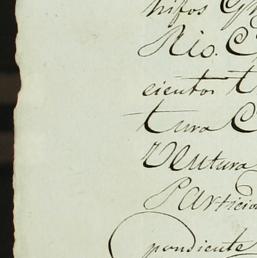 hijos
Rio. C
cientos t
tura C
Ventura
Particio
pondiente